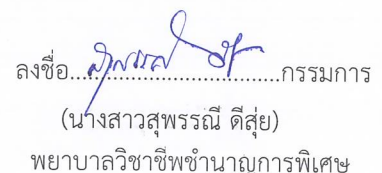 ลงชื่อ....................................กรรมการ
(นางสาวสุพรรณี ดีสุ่ย)
พยาบาลวิชาชีพชำนาญการพิเศษ